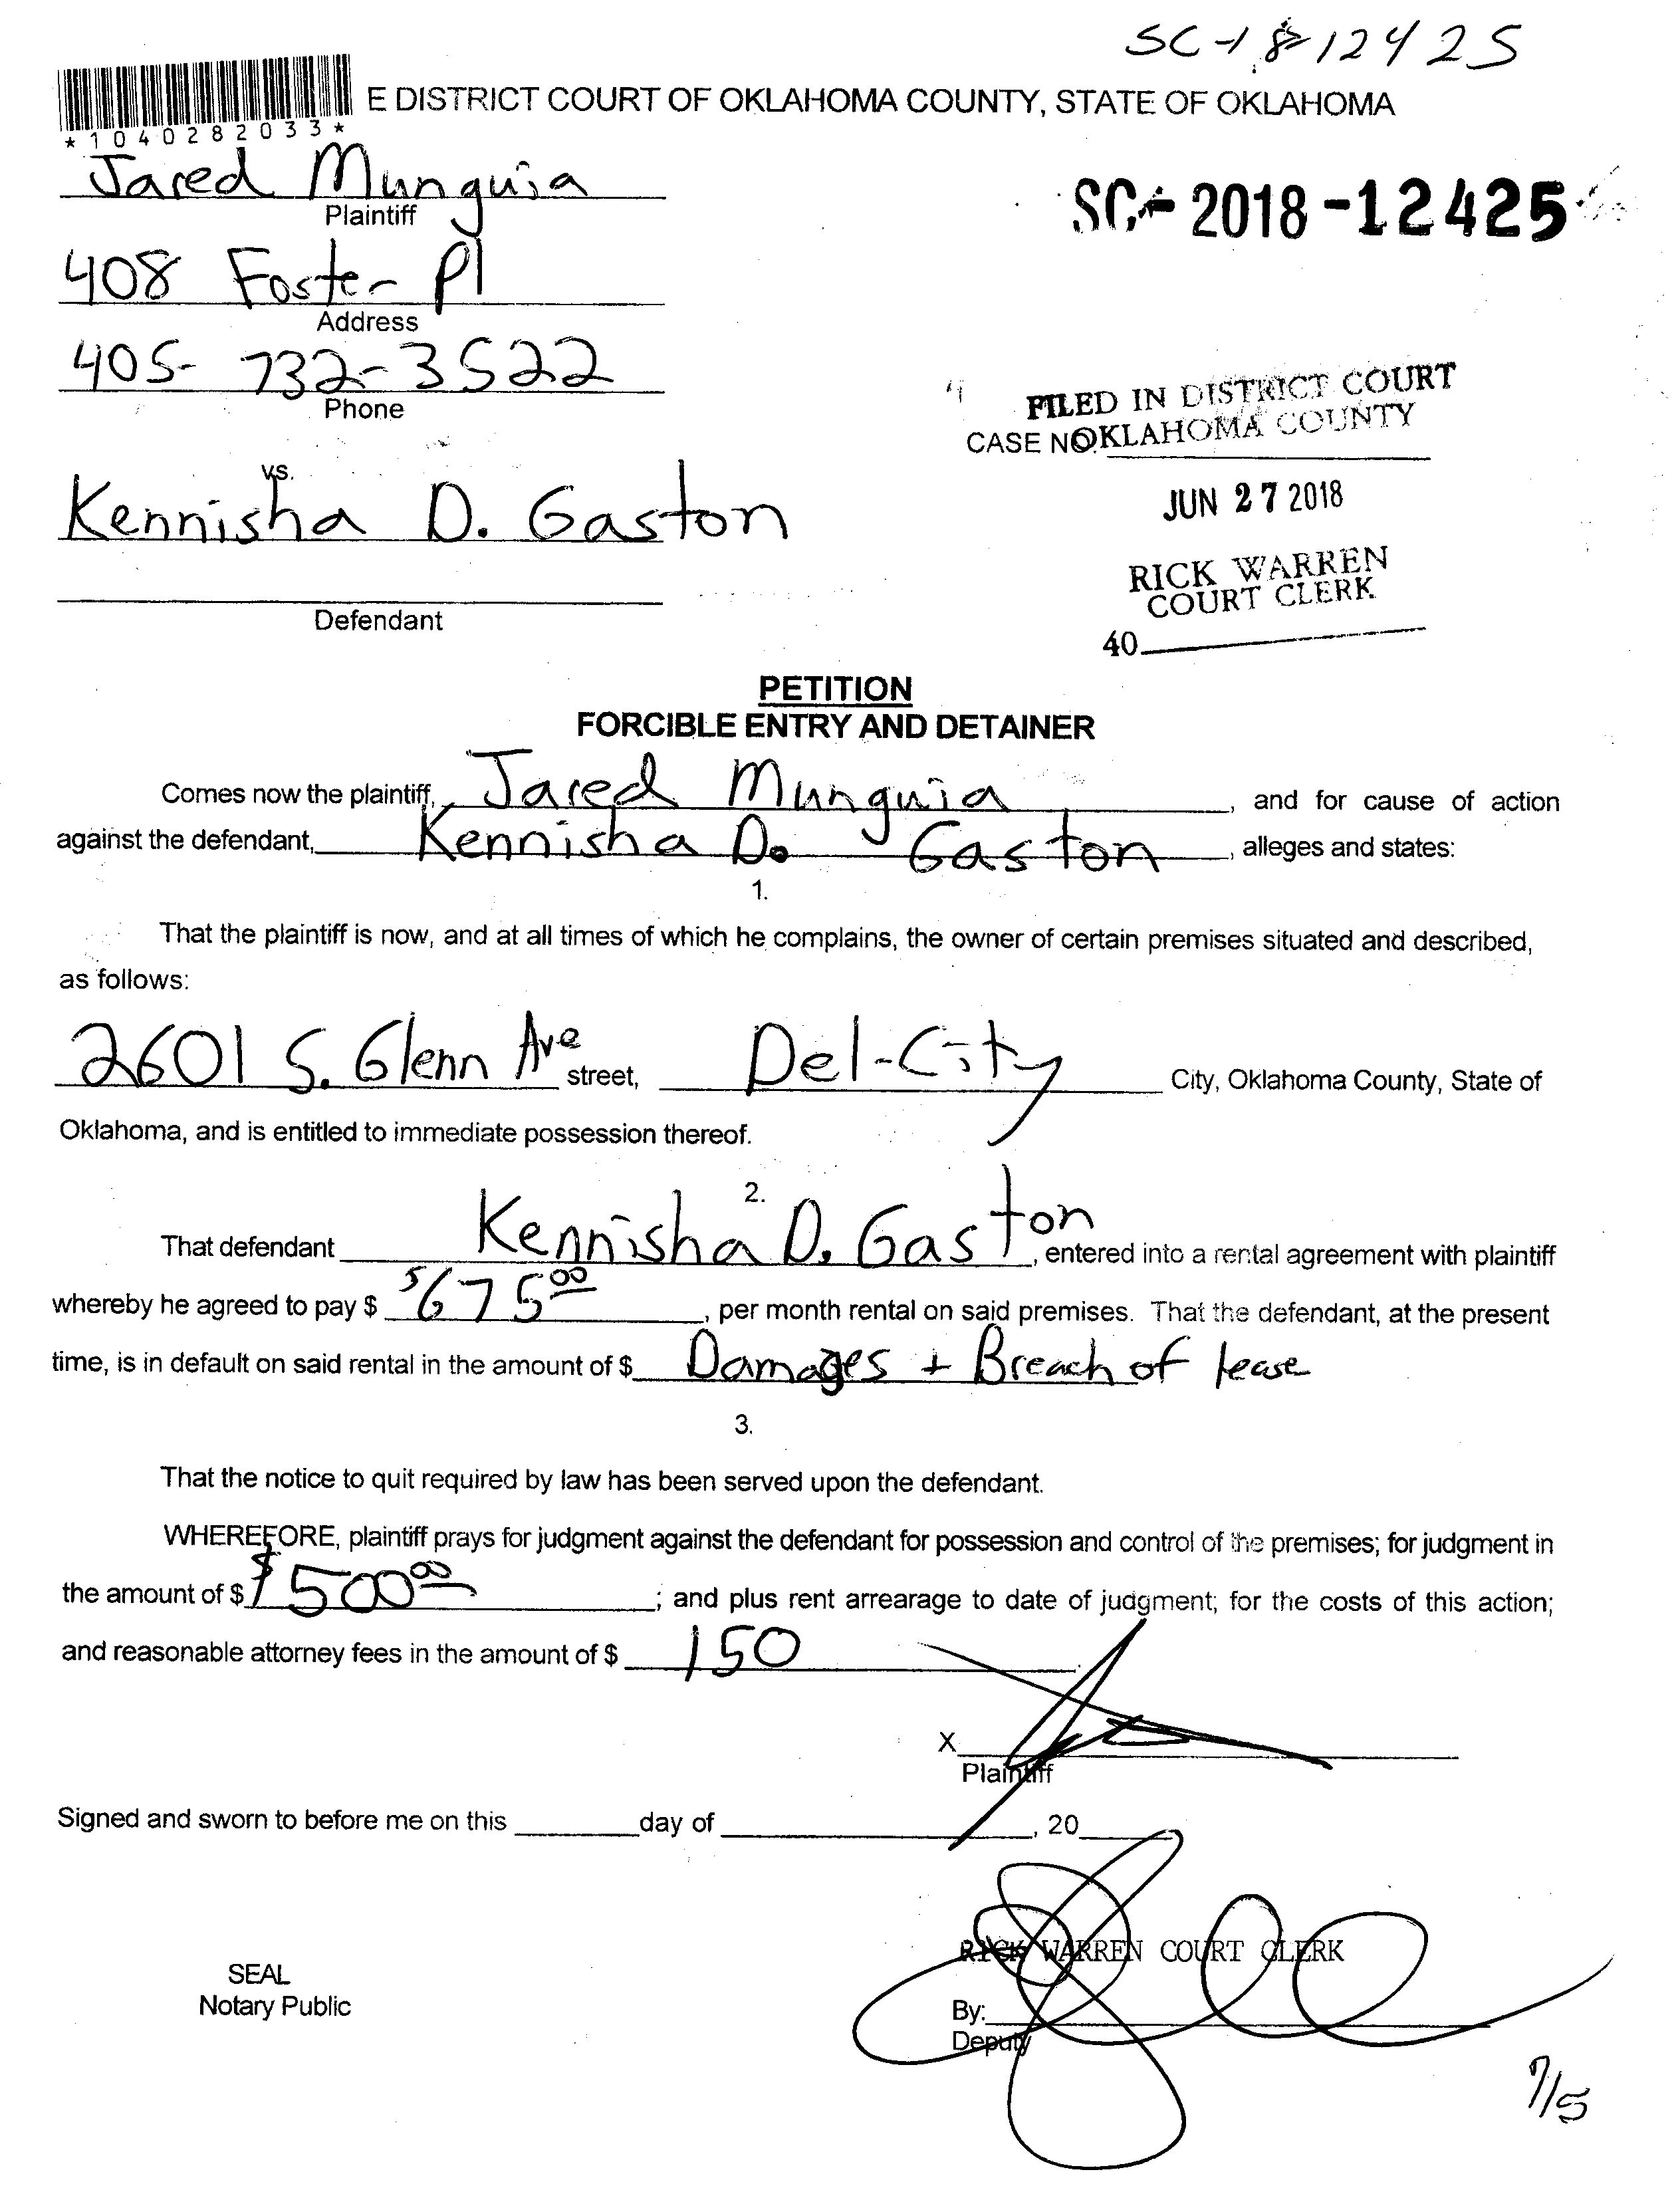 SC-18-12425
E DISTRICT COURT OF OKLAHOMA COUNTY, STATE OF OKLAHOMA
*1040282033*
Jared Munguia
Plaintiff
SC- 2018-12425
408 Foster Pl
Address
405-732-3522
Phone
FILED IN DISTRICT COURT
OKLAHOMA COUNTY
CASE NO.
vs.
Kennisha D. Gaston
JUN 27 2018
RICK WARREN
COURT CLERK
Defendant
40
PETITION
FORCIBLE ENTRY AND DETAINER
Comes now the plaintiff, Jared Munguia, and for cause of action
against the defendant, Kennisha D. Gaston, alleges and states:
1.
That the plaintiff is now, and at all times of which he complains, the owner of certain premises situated and described,
as follows:
2601 S. Glenn Ave street, Del-City City, Oklahoma County, State of
Oklahoma, and is entitled to immediate possession thereof.
2.
That defendant Kennisha D. Gaston, entered into a rental agreement with plaintiff
whereby he agreed to pay $ $675.00, per month rental on said premises. That the defendant, at the present
time, is in default on said rental in the amount of $ Damages + Breach of lease
3.
That the notice to quit required by law has been served upon the defendant.
WHEREFORE, plaintiff prays for judgment against the defendant for possession and control of the premises; for judgment in
the amount of $ $1500.00; and plus rent arrearage to date of judgment; for the costs of this action;
and reasonable attorney fees in the amount of $ 150.
X
Plaintiff
Signed and sworn to before me on this day of , 20
RICK WARREN COURT CLERK
SEAL
Notary Public
By:
Deputy
7/5